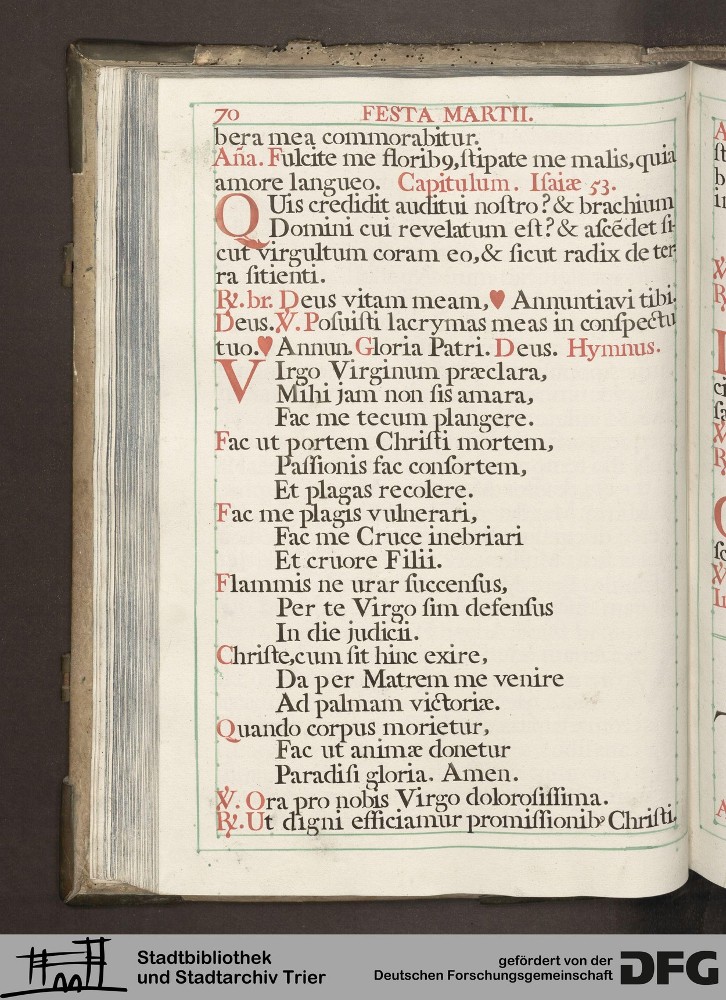 70 FESTA MARTII.
bera mea commorabitur.
Aña. Fulcite me florib9, ſtipate me malis, quia
amore langueo. Capitulum. Iſaiæ 53.
QUis credidit auditui noſtro? & brachium
Domini cui revelatum eſt? & aſcēdet ſi-
cut virgultum coram eo, & ſicut radix de ter-
ra ſitienti.
℟. br. Deus vitam meam, ♥ Annuntiavi tibi.
Deus. ℣. Poſuiſti lacrymas meas in conſpectu
tuo. ♥ Annun. Gloria Patri. Deus. Hymnus.
VIrgo Virginum præclara,
Mihi jam non ſis amara,
Fac me tecum plangere.
Fac ut portem Chriſti mortem,
Paſſionis fac conſortem,
Et plagas recolere.
Fac me plagis vulnerari,
Fac me Cruce inebriari
Et cruore Filii.
Flammis ne urar ſuccenſus,
Per te Virgo ſim defenſus
In die judicii.
Chriſte, cum ſit hinc exire,
Da per Matrem me venire
Ad palmam victoriæ.
Quando corpus morietur,
Fac ut animæ donetur
Paradiſi gloria. Amen.
℣. Ora pro nobis Virgo doloroſiſſima.
℟. Ut digni efficiamur promiſſionib9 Chriſti.
Stadtbibliothek
und Stadtarchiv Trier
gefördert von der
Deutschen Forschungsgemeinschaft
DFG